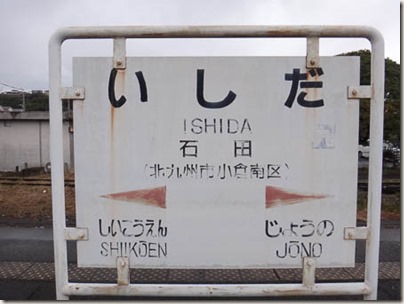 いしだ
ISHIDA
石田
(北九州市小倉南区)
しいこうえん じょうの
SHIIKŌEN JŌNO